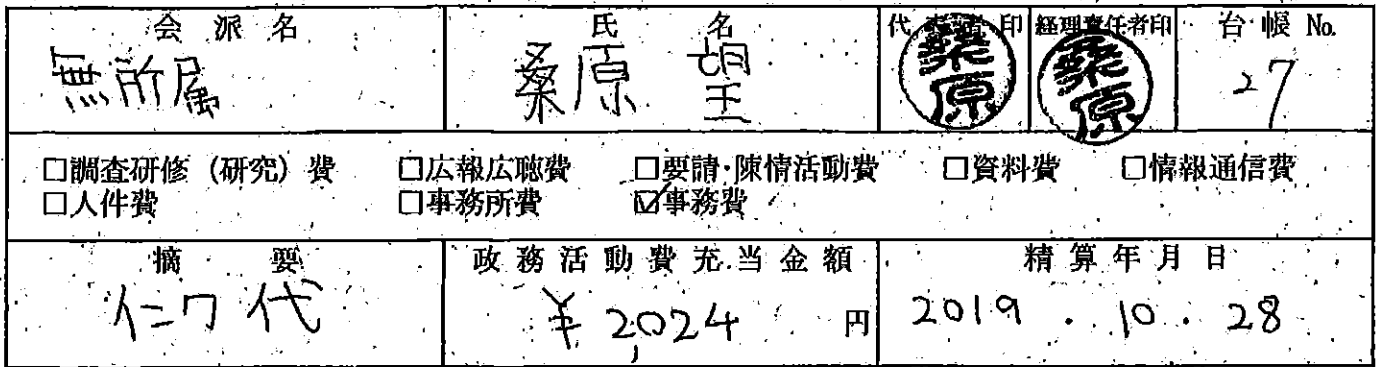 会派名 氏名 代表者印 経理責任者印 台帳No.
無所属 桑原 望 桑原 桑原 27
□調査研修(研究)費 □広報広聴費 □要請・陳情活動費 □資料費 □情報通信費
□人件費 □事務所費 ☑事務費
摘要 政務活動費充当金額 精算年月日
インク代 ¥2,024円 2019.10.28